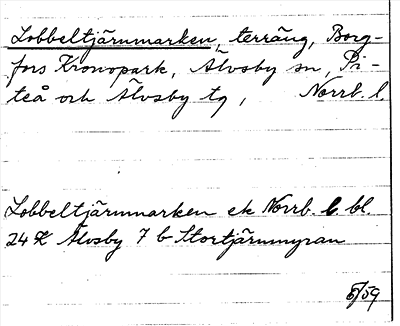 Lobbeltjärnmarken, terräng, Borg-
fors Kronopark, Älvsby sn, Pi-
teå och Älvsby tg, Norrb. l.
Lobbeltjärnmarken ek Norrb. l. bl.
24 K Älvsby 7 b Stortjärnmyran
5/59